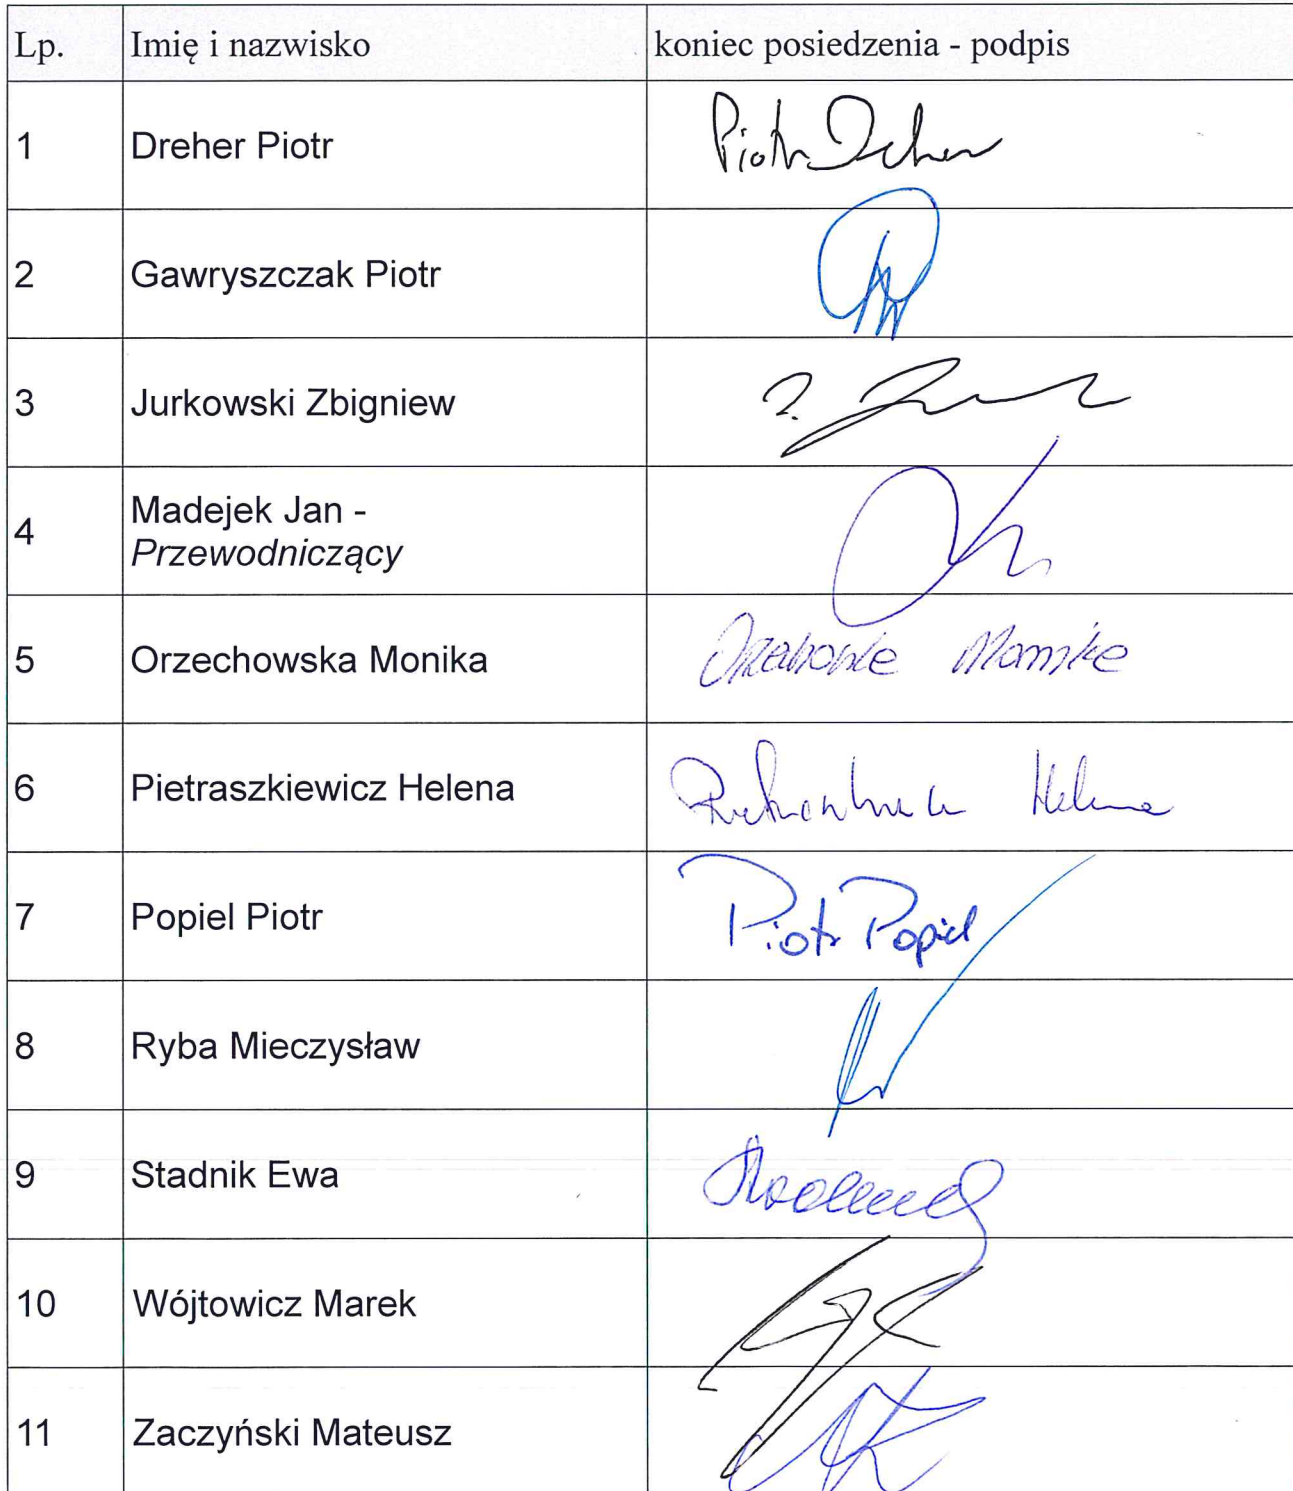 Lp. Imię i nazwisko koniec posiedzenia - podpis
1 Dreher Piotr Piotr Dreher
2 Gawryszczak Piotr
3 Jurkowski Zbigniew
4 Madejek Jan -
Przewodniczący
5 Orzechowska Monika
6 Pietraszkiewicz Helena Helena
7 Popiel Piotr Piotr Popiel
8 Ryba Mieczysław
9 Stadnik Ewa
10 Wójtowicz Marek
11 Zaczyński Mateusz